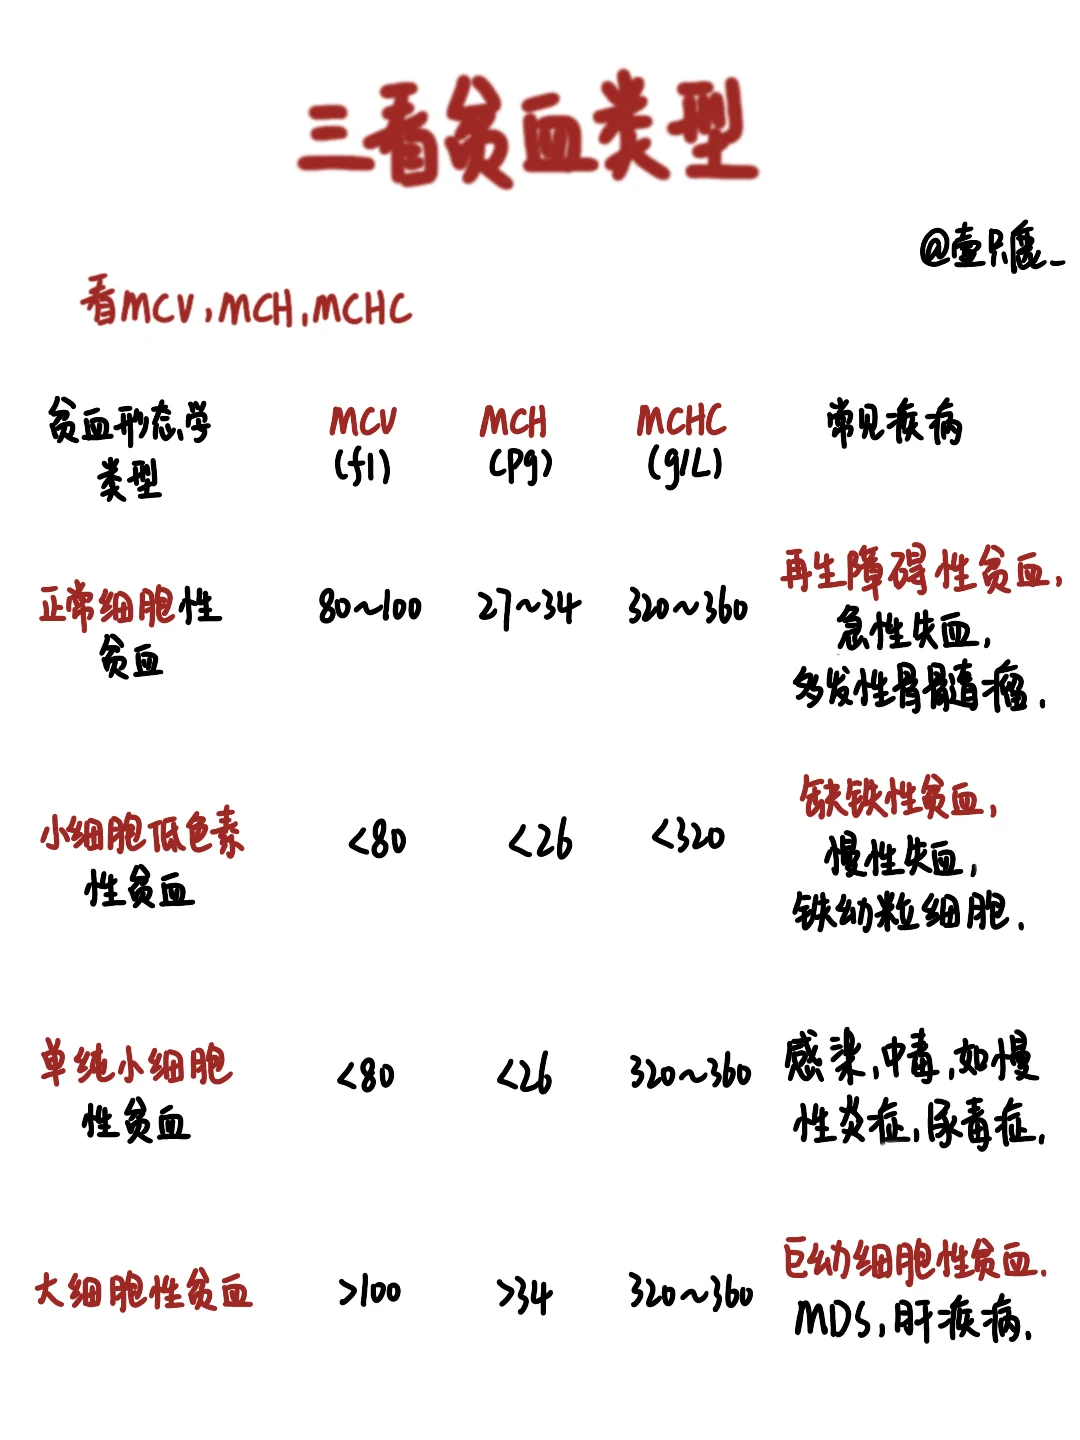 三看贫血类型
@壹只鹿_
看MCV,MCH,MCHC
贫血形态学 MCV MCH MCHC 常见疾病
类型 (fl) (pg) (g/L)
正常细胞性 80~100 27~34 320~360 再生障碍性贫血,
贫血 急性失血,
多发性骨髓瘤.
小细胞低色素 <80 <26 <320 缺铁性贫血,
性贫血 慢性失血,
铁幼粒细胞.
单纯小细胞 <80 <26 320~360 感染,中毒,如慢
性贫血 性炎症,尿毒症.
大细胞性贫血 >100 >34 320~360 巨幼细胞性贫血.
MDS,肝疾病.